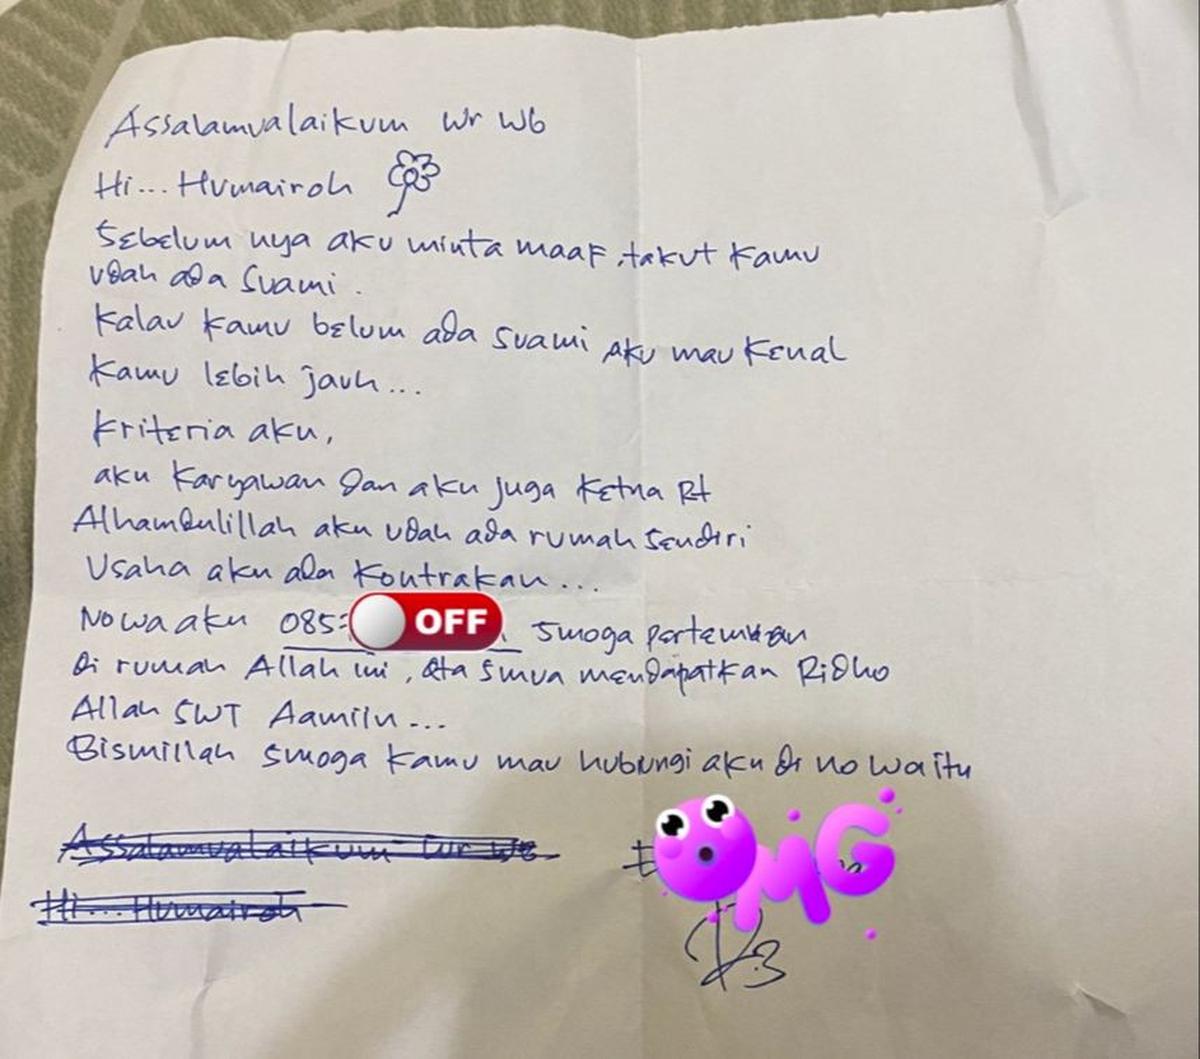 Assalamualaikum Wr Wb
Hi... Humairoh
Sebelum nya aku minta maaf, takut kamu
udah ada suami.
Kalau kamu belum ada suami aku mau kenal
kamu lebih jauh...
Kriteria aku,
aku karyawan dan aku juga ketua Rt
Alhamdulillah aku udah ada rumah sendiri
Usaha aku ada kontrakan...
No wa aku 085 OFF smoga pertemuan
di rumah Allah ini, kita smua mendapatkan Ridho
Allah SWT Aamiin...
Bismillah smoga kamu mau hubungi aku di no wa itu
Assalamualaikum Wr Wb
Hi... Humairoh
OMG